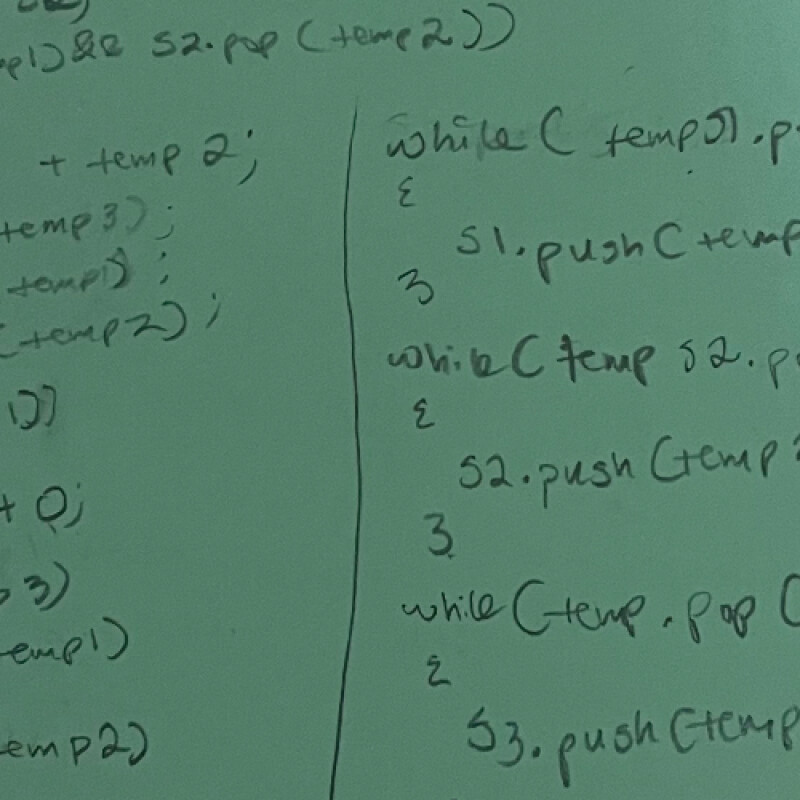 && s2.pop (temp2))
+ temp 2;
temp3);
temp1);
(temp2);
1))
+ 0;
3)
temp1)
temp2)
while( temp s1.p
{
s1.push(temp
}
while( temp s2.p
{
s2.push (temp 2
}
while (temp.pop (
{
s3.push (temp